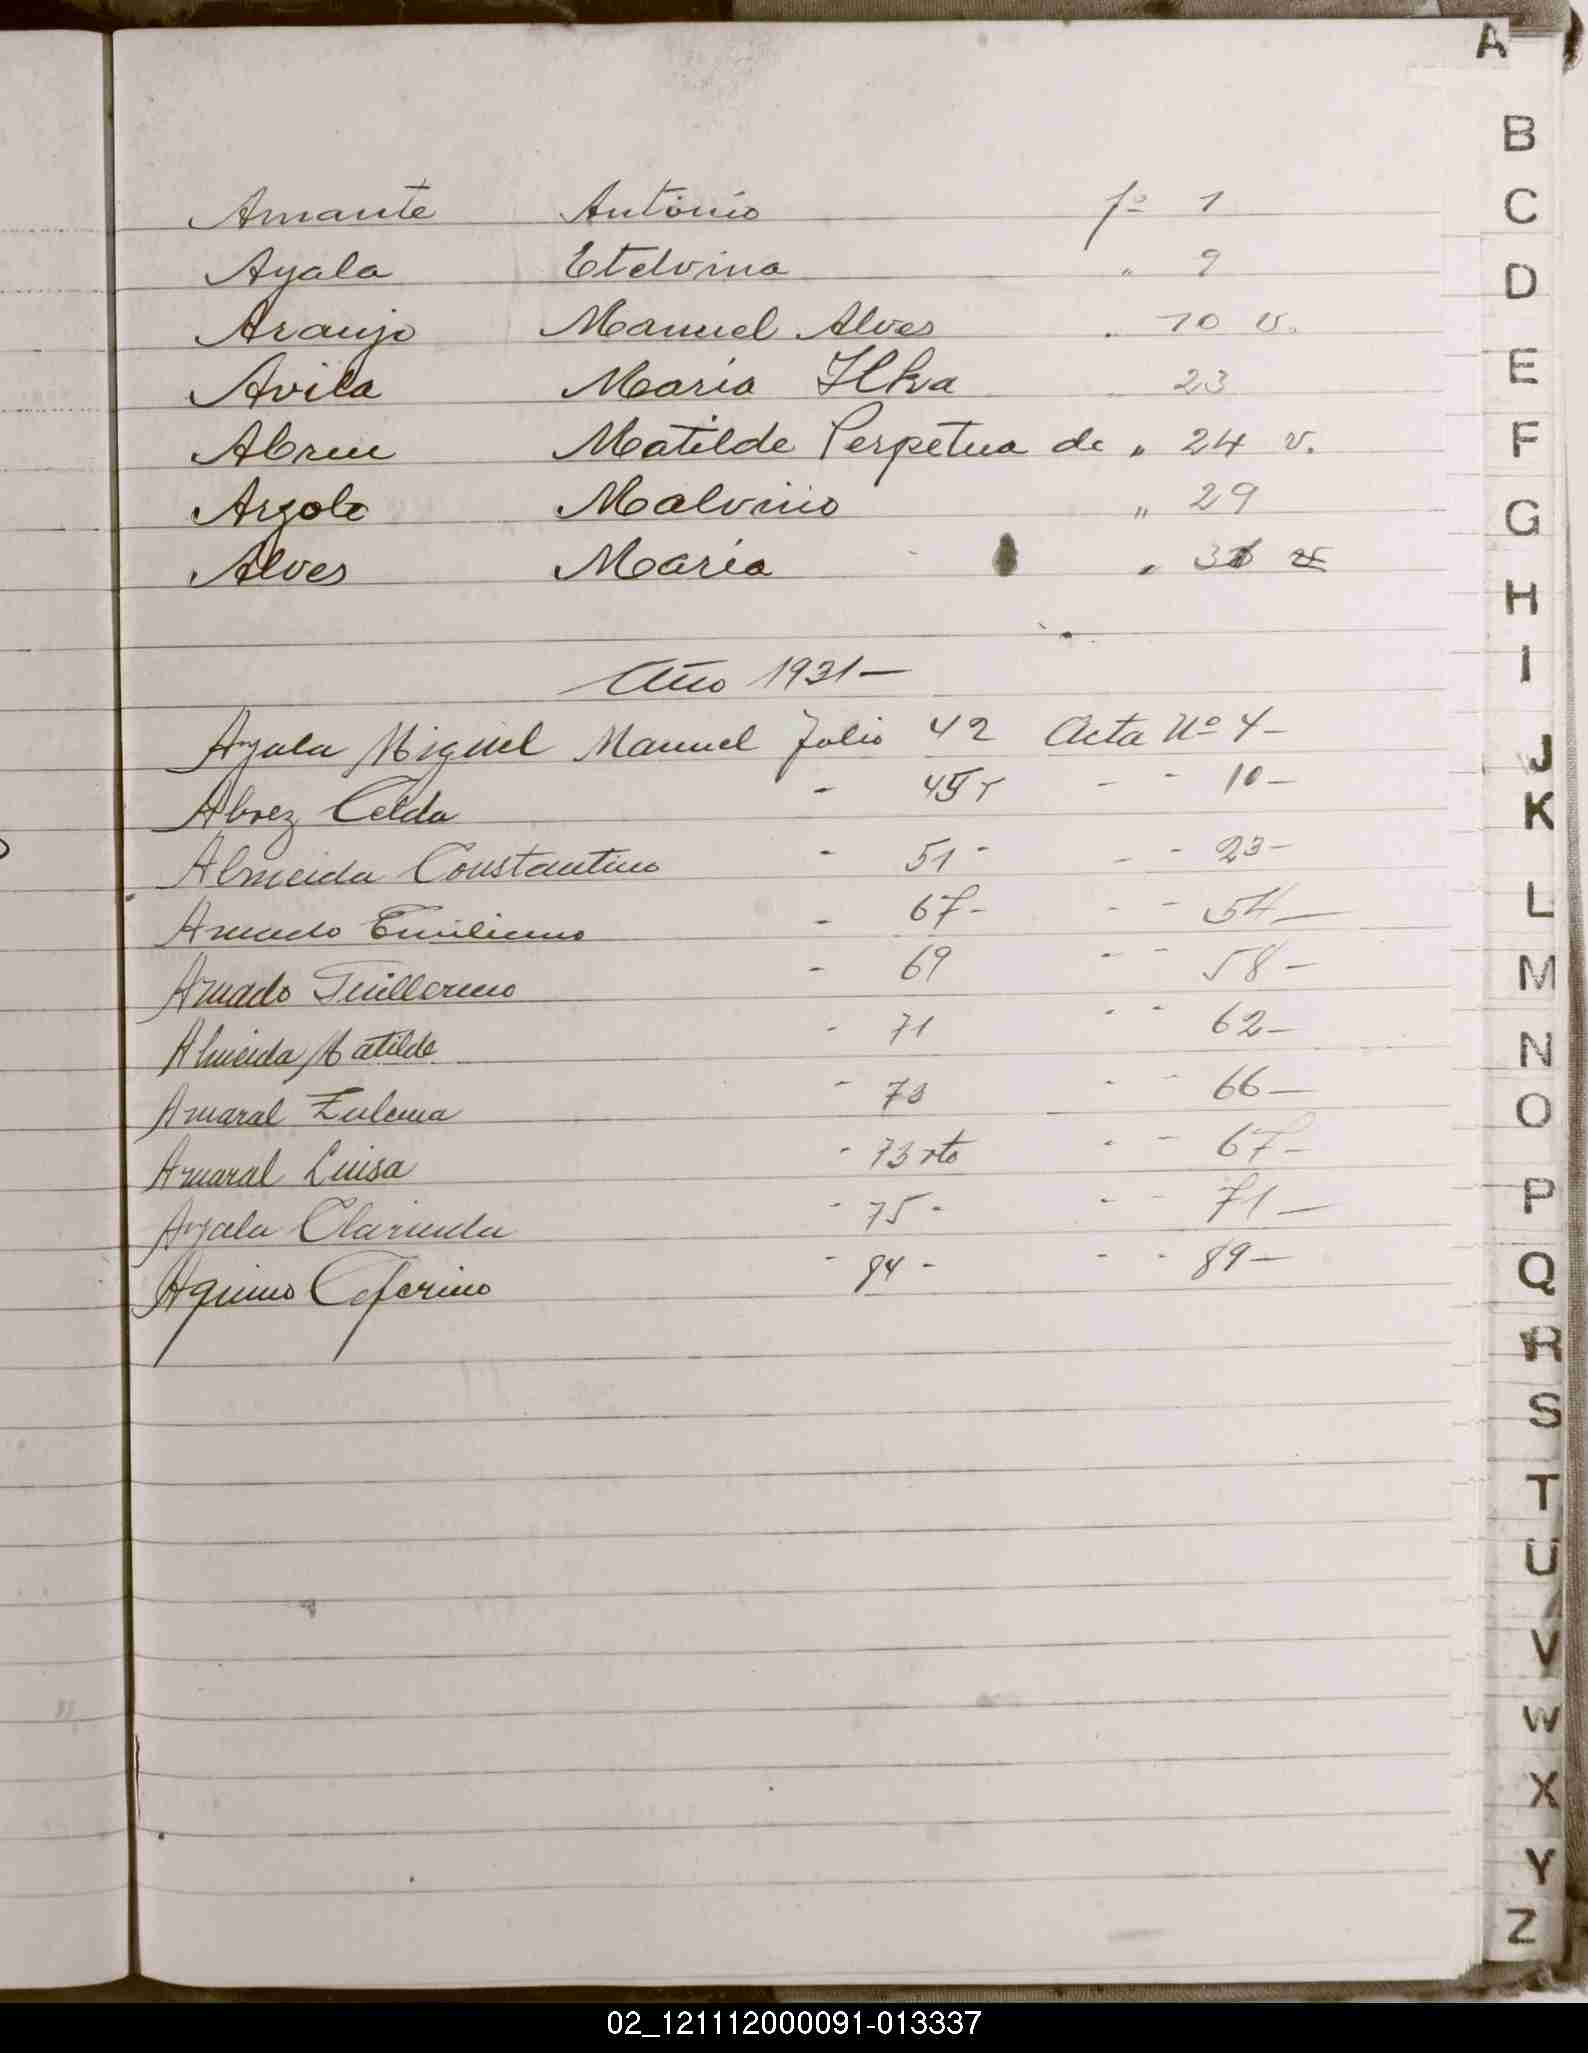 A
B
C
D
E
F
G
H
I
J
K
L
M
N
O
P
Q
R
S
T
U
V
W
X
Y
Z
Amante Antonio fº 1
Ayala Etelvina " 9
Araujo Manuel Alves . 10 v.
Avila Maria Ilka 23
Abreu Matilde Perpetua de " 24 v.
Argolo Malvinio " 29
Alves Maria "
Año 1931-
Ayala Miguel Manuel folio 42 Acta Nº 4-
Abrez Celda - - - 10-
Almeida Constantino - 51 - - - 23-
Amado Emiliano - 67- - - 54-
Amado Guillermo - 69 - - 58-
Almeida Matilde - 71 - - 62-
Amaral Zulema - 73 - - 66-
Amaral Luisa - 73 vto - - 67-
Ayala Clarinda - 75 - - - 71-
Aquino Ceferino - 84 - - - 89-
02_121112000091-013337